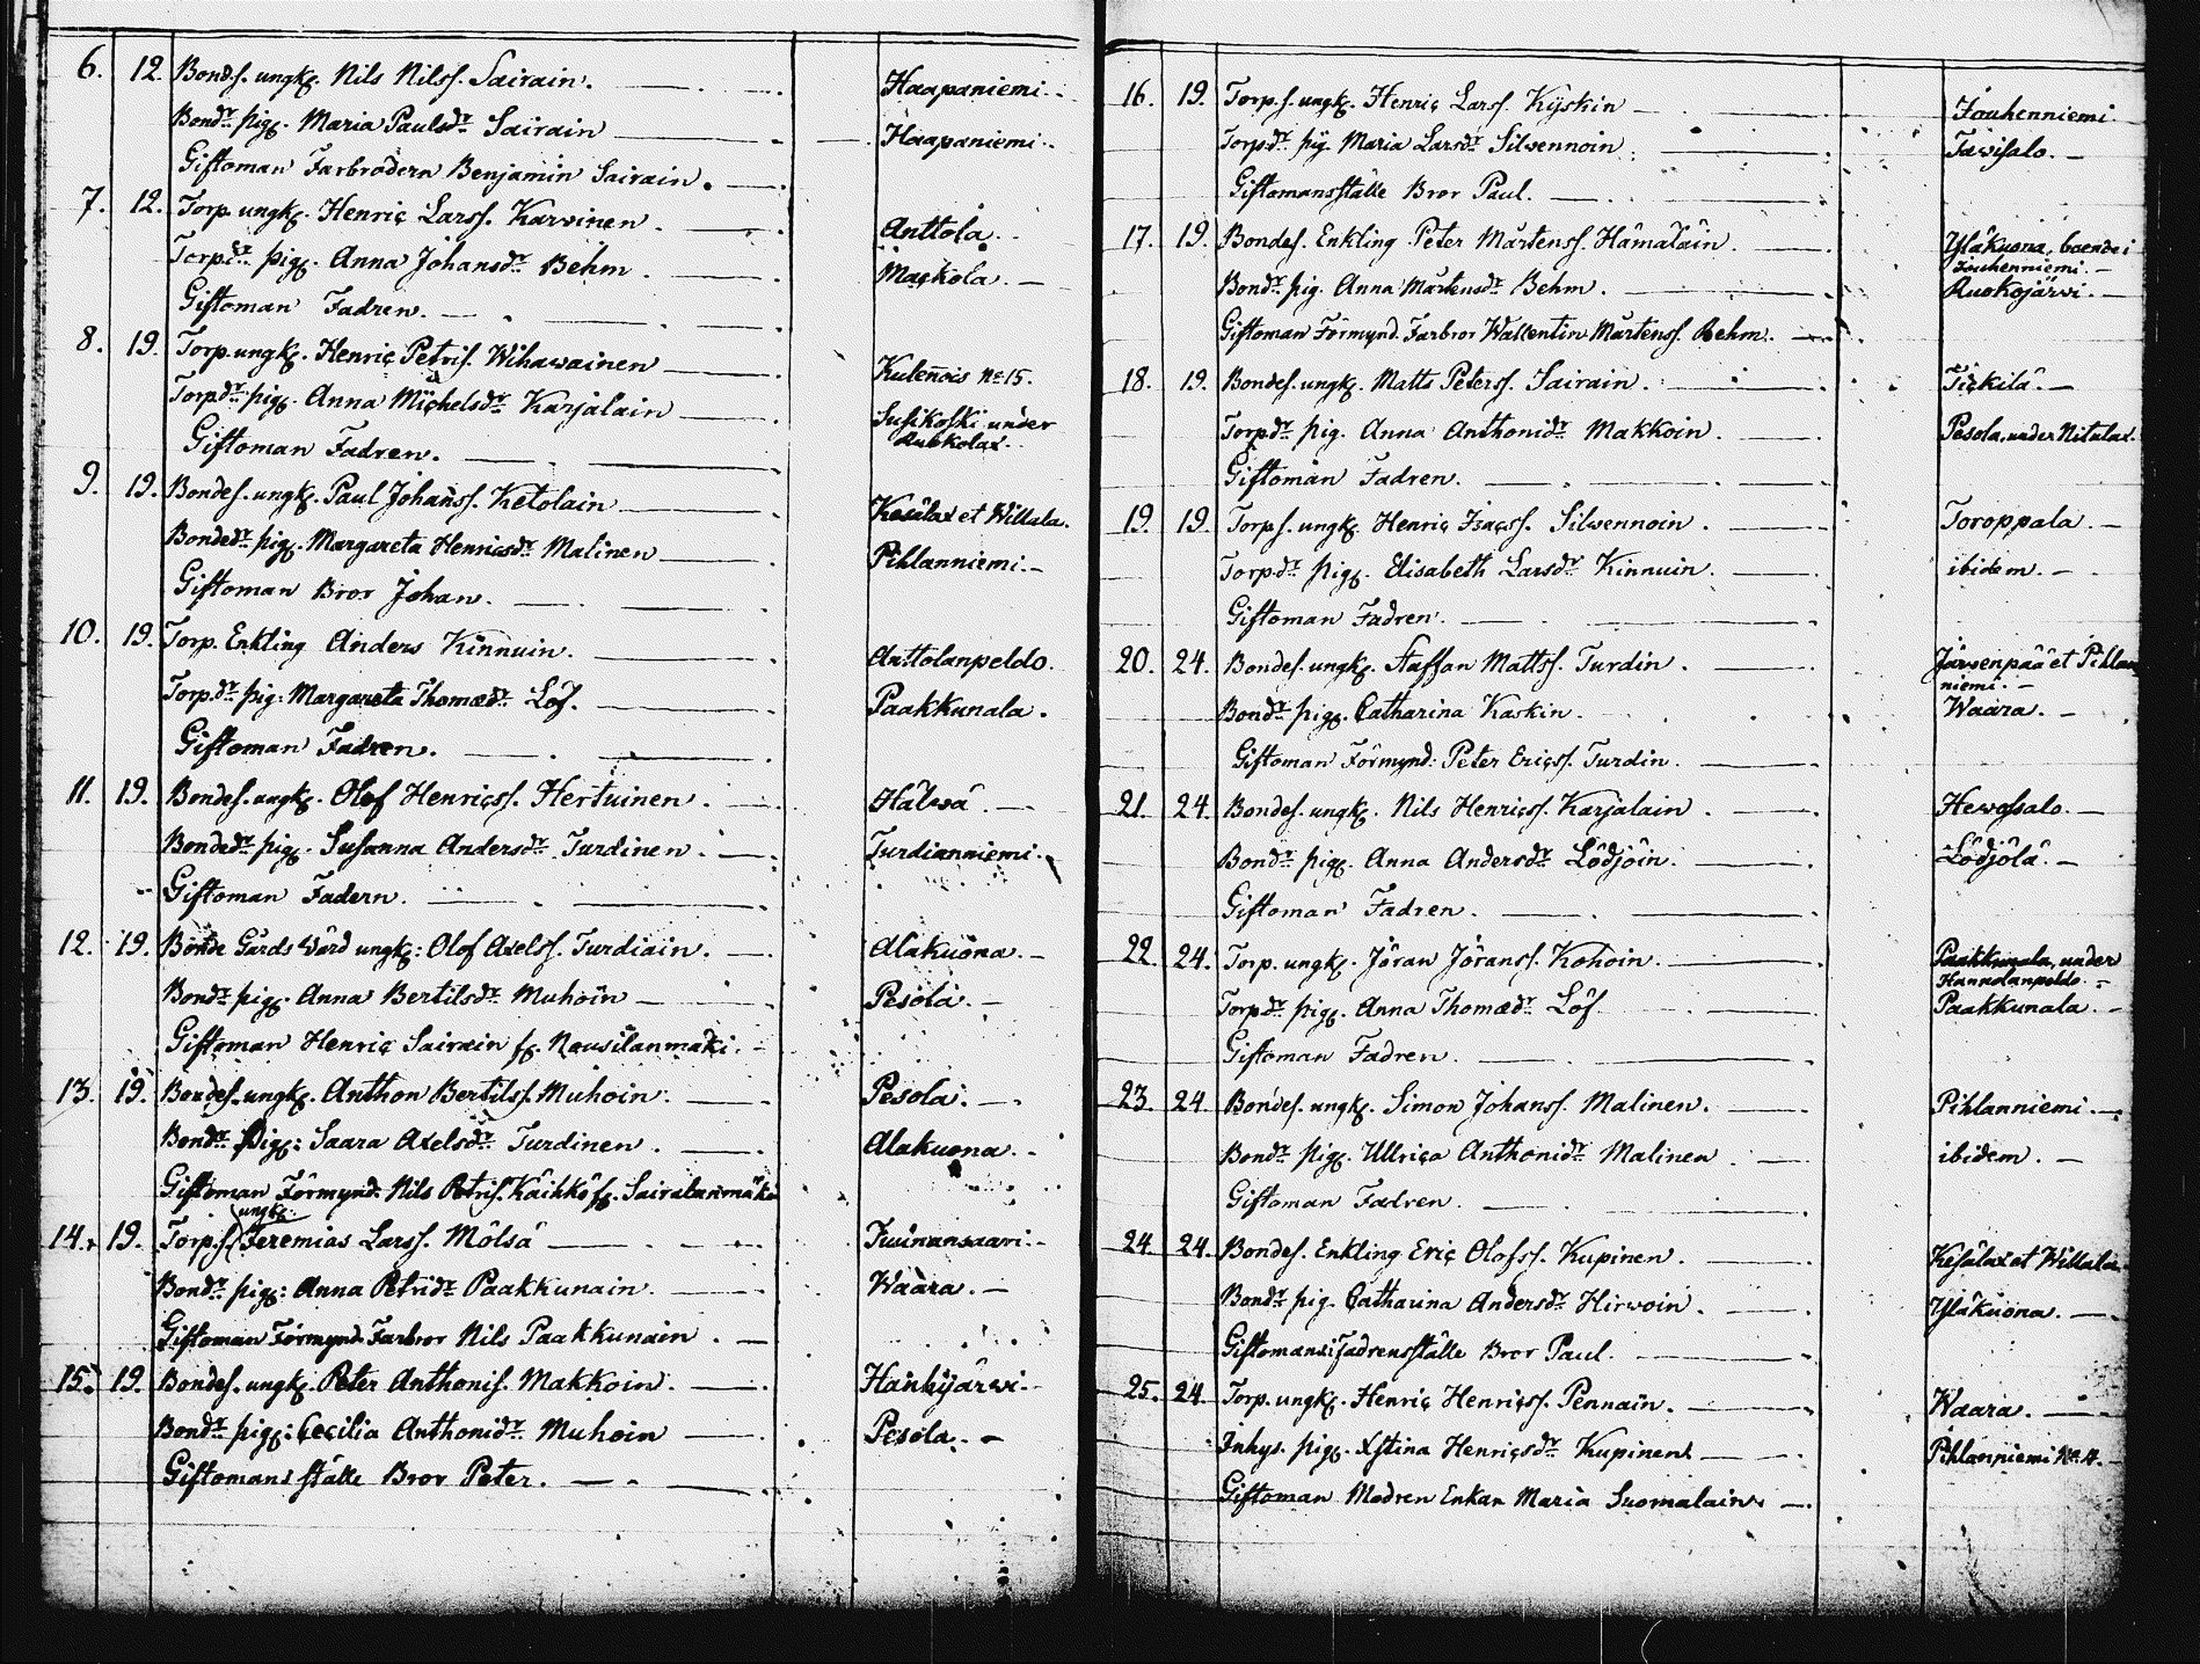 6. 12. Bonds. ungk. Nils Nilss. Sairain. Haapaniemi.
Bondr. pig. Maria Paulsdr. Sairain Haapaniemi.
Giftoman Farbrodern Benjamin Sairain.
7. 12. Torp. ungk. Henric Larss. Karvinen. Anttola.
Torpdr. pig. Anna Johansdr. Behm. Mackola.
Giftoman Fadren.
8. 19. Torp. ungk. Henric Petris. Wihawainen Kulennois No 15.
Torpdr. pig. Anna Michelsdr. Karjalain Susikoski under
Giftoman Fadren. Rukkolax.
9. 19. Bondes. ungk. Paul Johanss. Ketolain Kesälax et Willala.
Bondedr. pig. Margareta Henricsdr. Malinen Pihlanniemi.
Giftoman Bror Johan.
10. 19. Torp. Enkling Anders Kinnuin. Anttolanpeldo.
Torpdr. pig. Margareta Thomædr. Löf. Paakkunala.
Giftoman Fadren.
11. 19. Bondes. ungk. Olof Henricss. Hertuinen. Hälwä.
Bondedr. pig. Susanna Andersdr. Turdinen. Turdianniemi.
Giftoman Fadern.
12. 19. Bonde Gårds Vård ungk: Olof Axelss. Turdiain. Alakuona.
Bondr. pig. Anna Bertilsdr. Muhoin Pesola.
Giftoman Henric Sairain fr. Nousilanmäki.
13. 19. Bondes. ungk. Anthon Bertilss. Muhoin. Pesola.
Bondr. Pig: Saara Axelsdr. Turdinen. Alakuona.
Giftoman Förmynd. Nils Petris. Käihkö fr. Sairalanmäki
ungk.
14. 19. Torp.s. Jeremias Larss. Mölsä Tuunansaari.
Bondr. pig: Anna Petridr. Paakkunain. Waara.
Giftoman Förmynd. Farbror Nils Paakkunain.
15. 19. Bondes. ungk. Peter Anthonis. Makkoin. Hankijärwi.
Bondr. pig: Cecilia Anthonidr. Muhoin Pesola.
Giftomans ställe Bror Peter.
16. 19. Torp.s. ungk. Henric Larss. Kyskin Jouhenniemi.
Torpdr. pig. Maria Larsdr. Silvennoin. Tavisalo.
Giftomansställe Bror Paul.
17. 19. Bondes. Enkling Peter Mårtenss. Hämäläin. Yläkuona, boende i
Jouhenniemi.
Bondr. pig. Anna Mårtensdr. Behm. Ruokojärvi.
Giftoman Förmynd. Farbror Wallentin Mårtenss. Behm.
18. 19. Bondes. ungk. Matts Peterss. Sairain. Tickilä.
Torpdr. pig. Anna Anthonidr. Makkoin. Pesola, under Nitulax.
Giftoman Fadren.
19. 19. Torps. ungk. Henric Isacss. Silvennoin. Toroppala.
Torpdr. pig. Elisabeth Larsdr. Kinnuin. ibidem.
Giftoman Fadren.
20. 24. Bondes. ungk. Staffan Mattss. Turdin. Järvenpää et Pihlan
niemi.
Bondr. pig. Catharina Kaskin. Waara.
Giftoman Förmynd: Peter Ericss. Turdin.
21. 24. Bondes. ungk. Nils Henricss. Karjalain. Hevossalo.
Bondr. pig. Anna Andersdr. Lödjöin. Lödjölä.
Giftoman Fadren.
22. 24. Torp. ungk. Jöran Jöranss. Kohoin. Paakkunala, under
Hannolanpeldo.
Torpdr. pig. Anna Thomædr. Löf. Paakkunala.
Giftoman Fadren.
23. 24. Bondes. ungk. Simon Johanss. Malinen. Pihlanniemi.
Bondr. pig. Ullrica Anthonidr. Malinen. ibidem.
Giftoman Fadren.
24. 24. Bondes. Enkling Eric Olofss. Kupinen. Kesälax et Willala.
Bondr. pig. Catharina Andersdr. Hirvoin. Yläkuona.
Giftoman i Fadrensställe Bror Paul.
25. 24. Torp. ungk. Henric Henricss. Pennain. Waara.
Inhys. pig. Xstina Henricsdr. Kupinen. Pihlanniemi No 4.
Giftoman Modren Enkan Maria Suomalain.